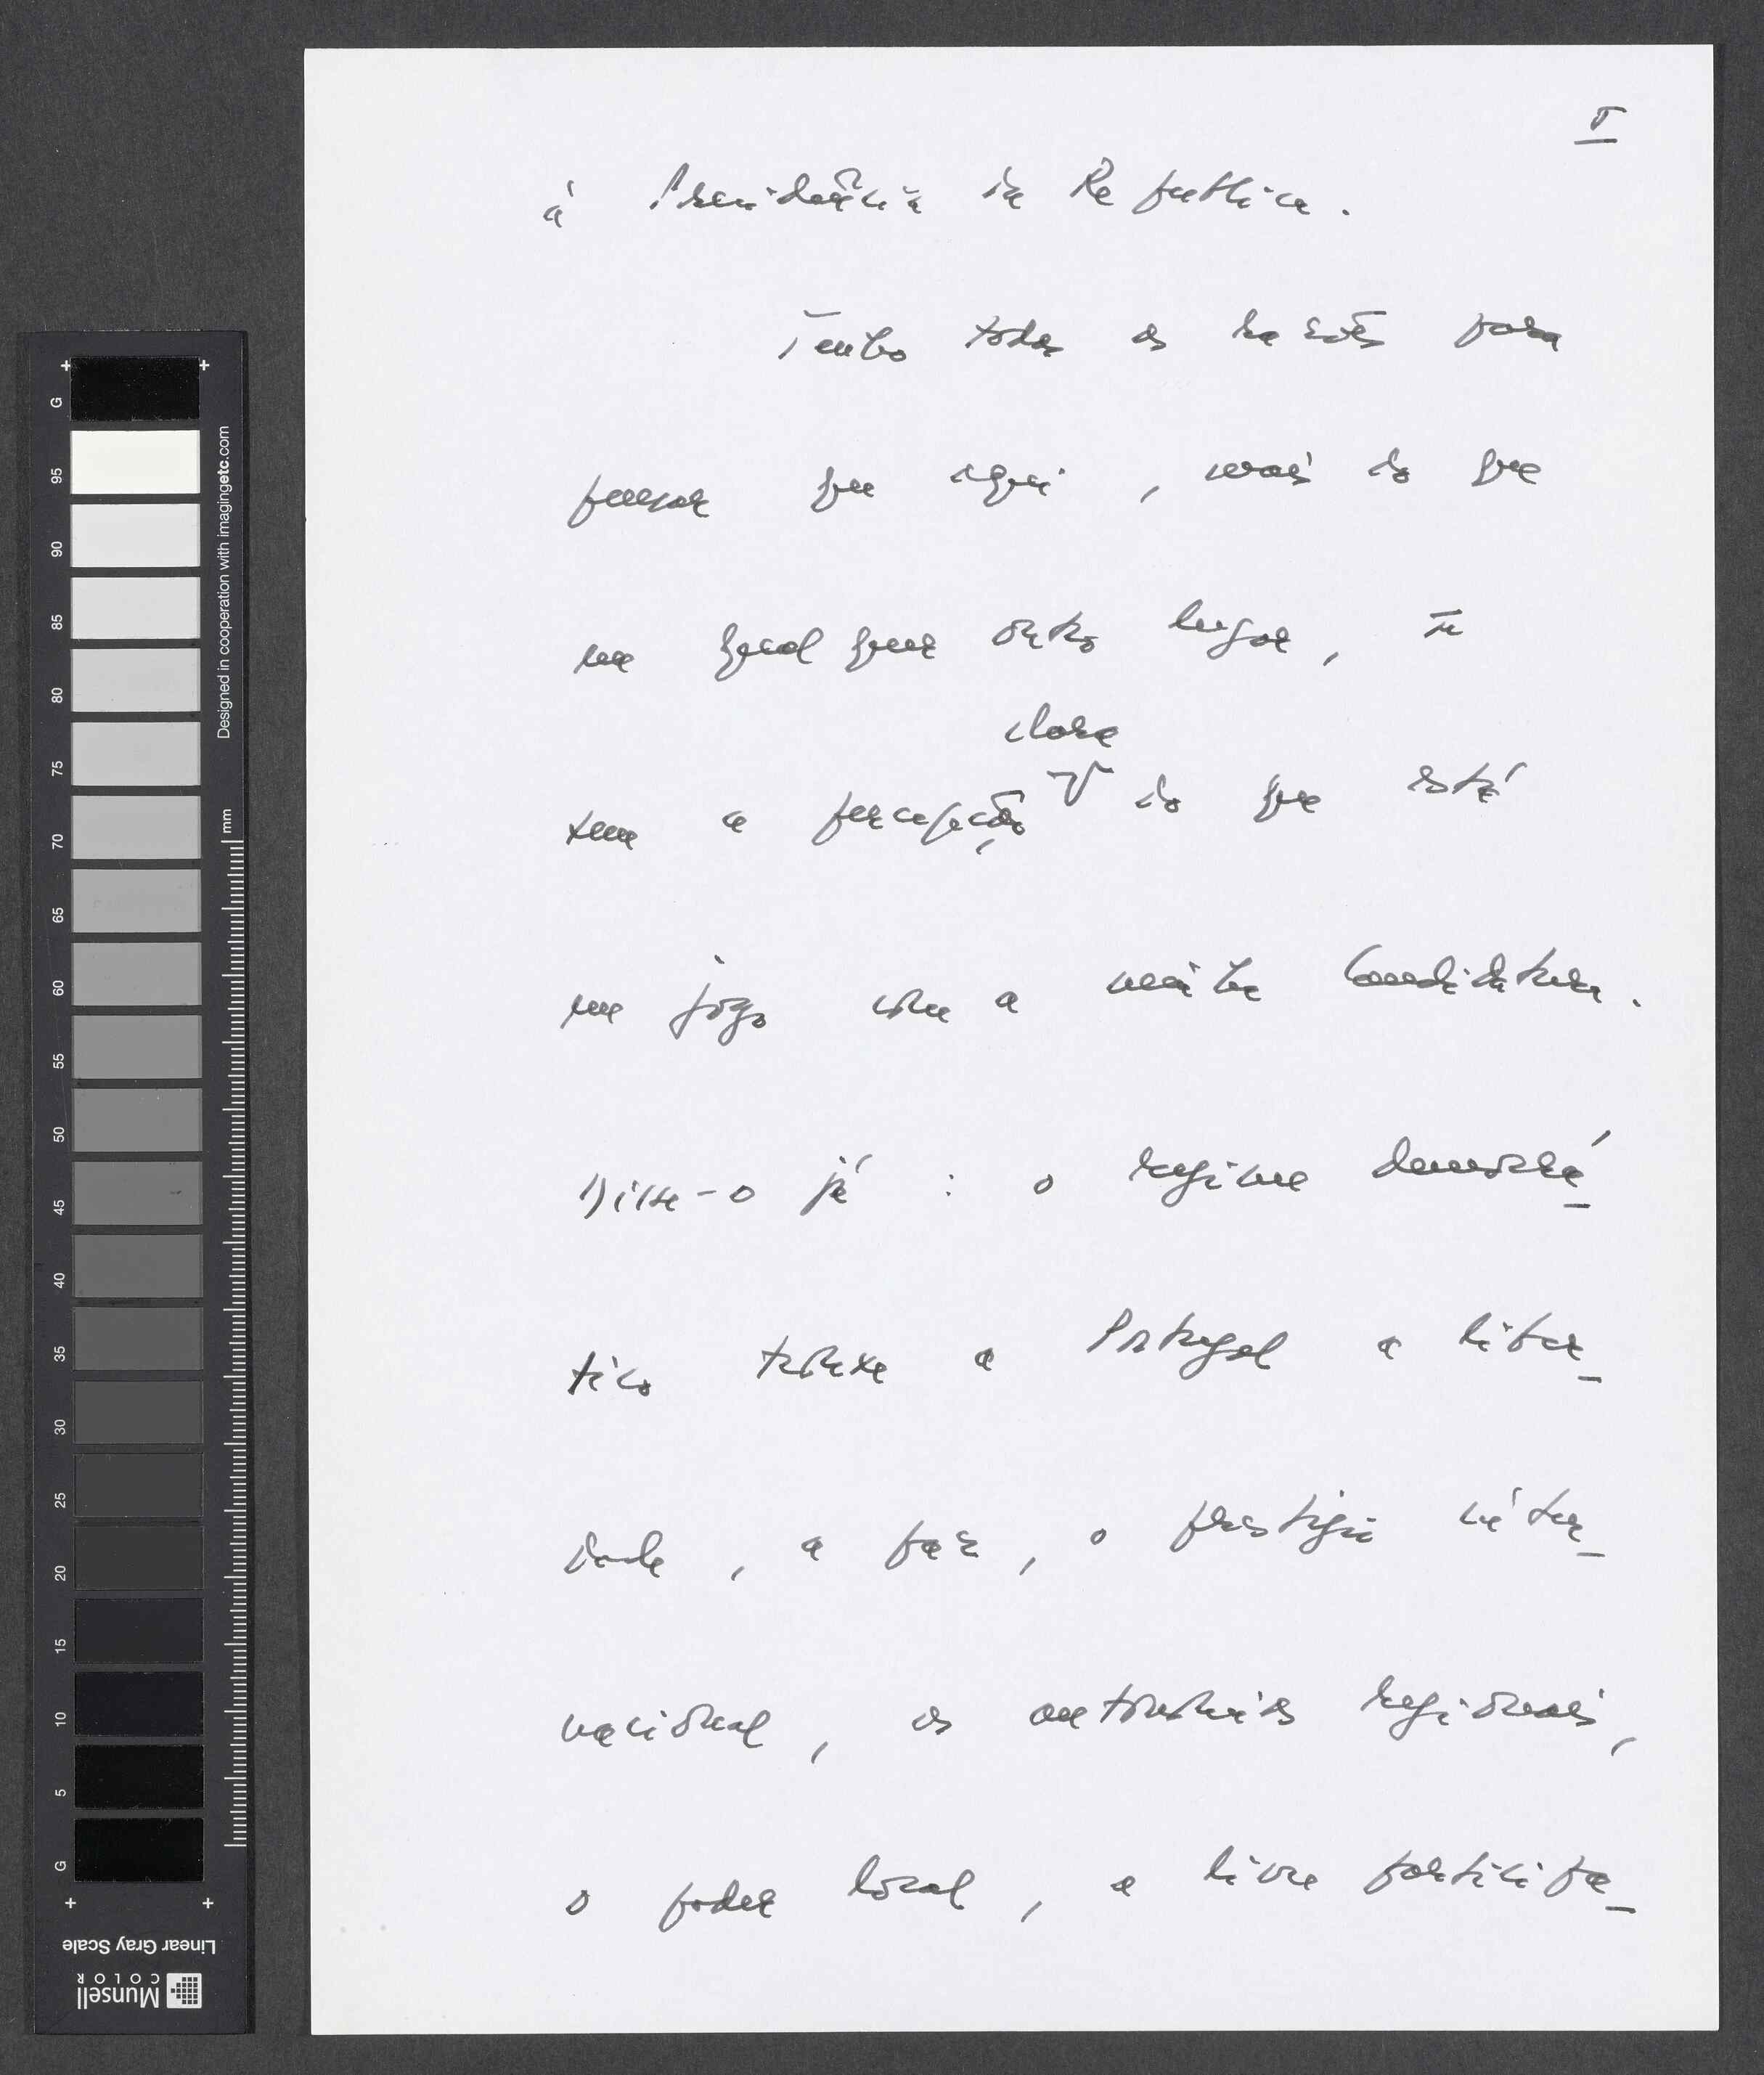 V
à Presidência da República.
Tenho todas as razões para
pensar que aqui, mais do que
em qualquer outro lugar, se
clara
tem a percepção V do que está
em jogo com a minha Candidatura.
Disse-o já : o regime democrá-
tico trouxe a Portugal a liber-
dade, a paz, o prestígio inter-
nacional, as autonomias regionais,
o poder local, a livre participa-
G
95
90
85
80
75
70
65
60
55
50
45
40
35
30
25
20
15
10
5
G
Designed in cooperation with imagingetc.com
mm
Linear Gray Scale
Munsell
COLOR